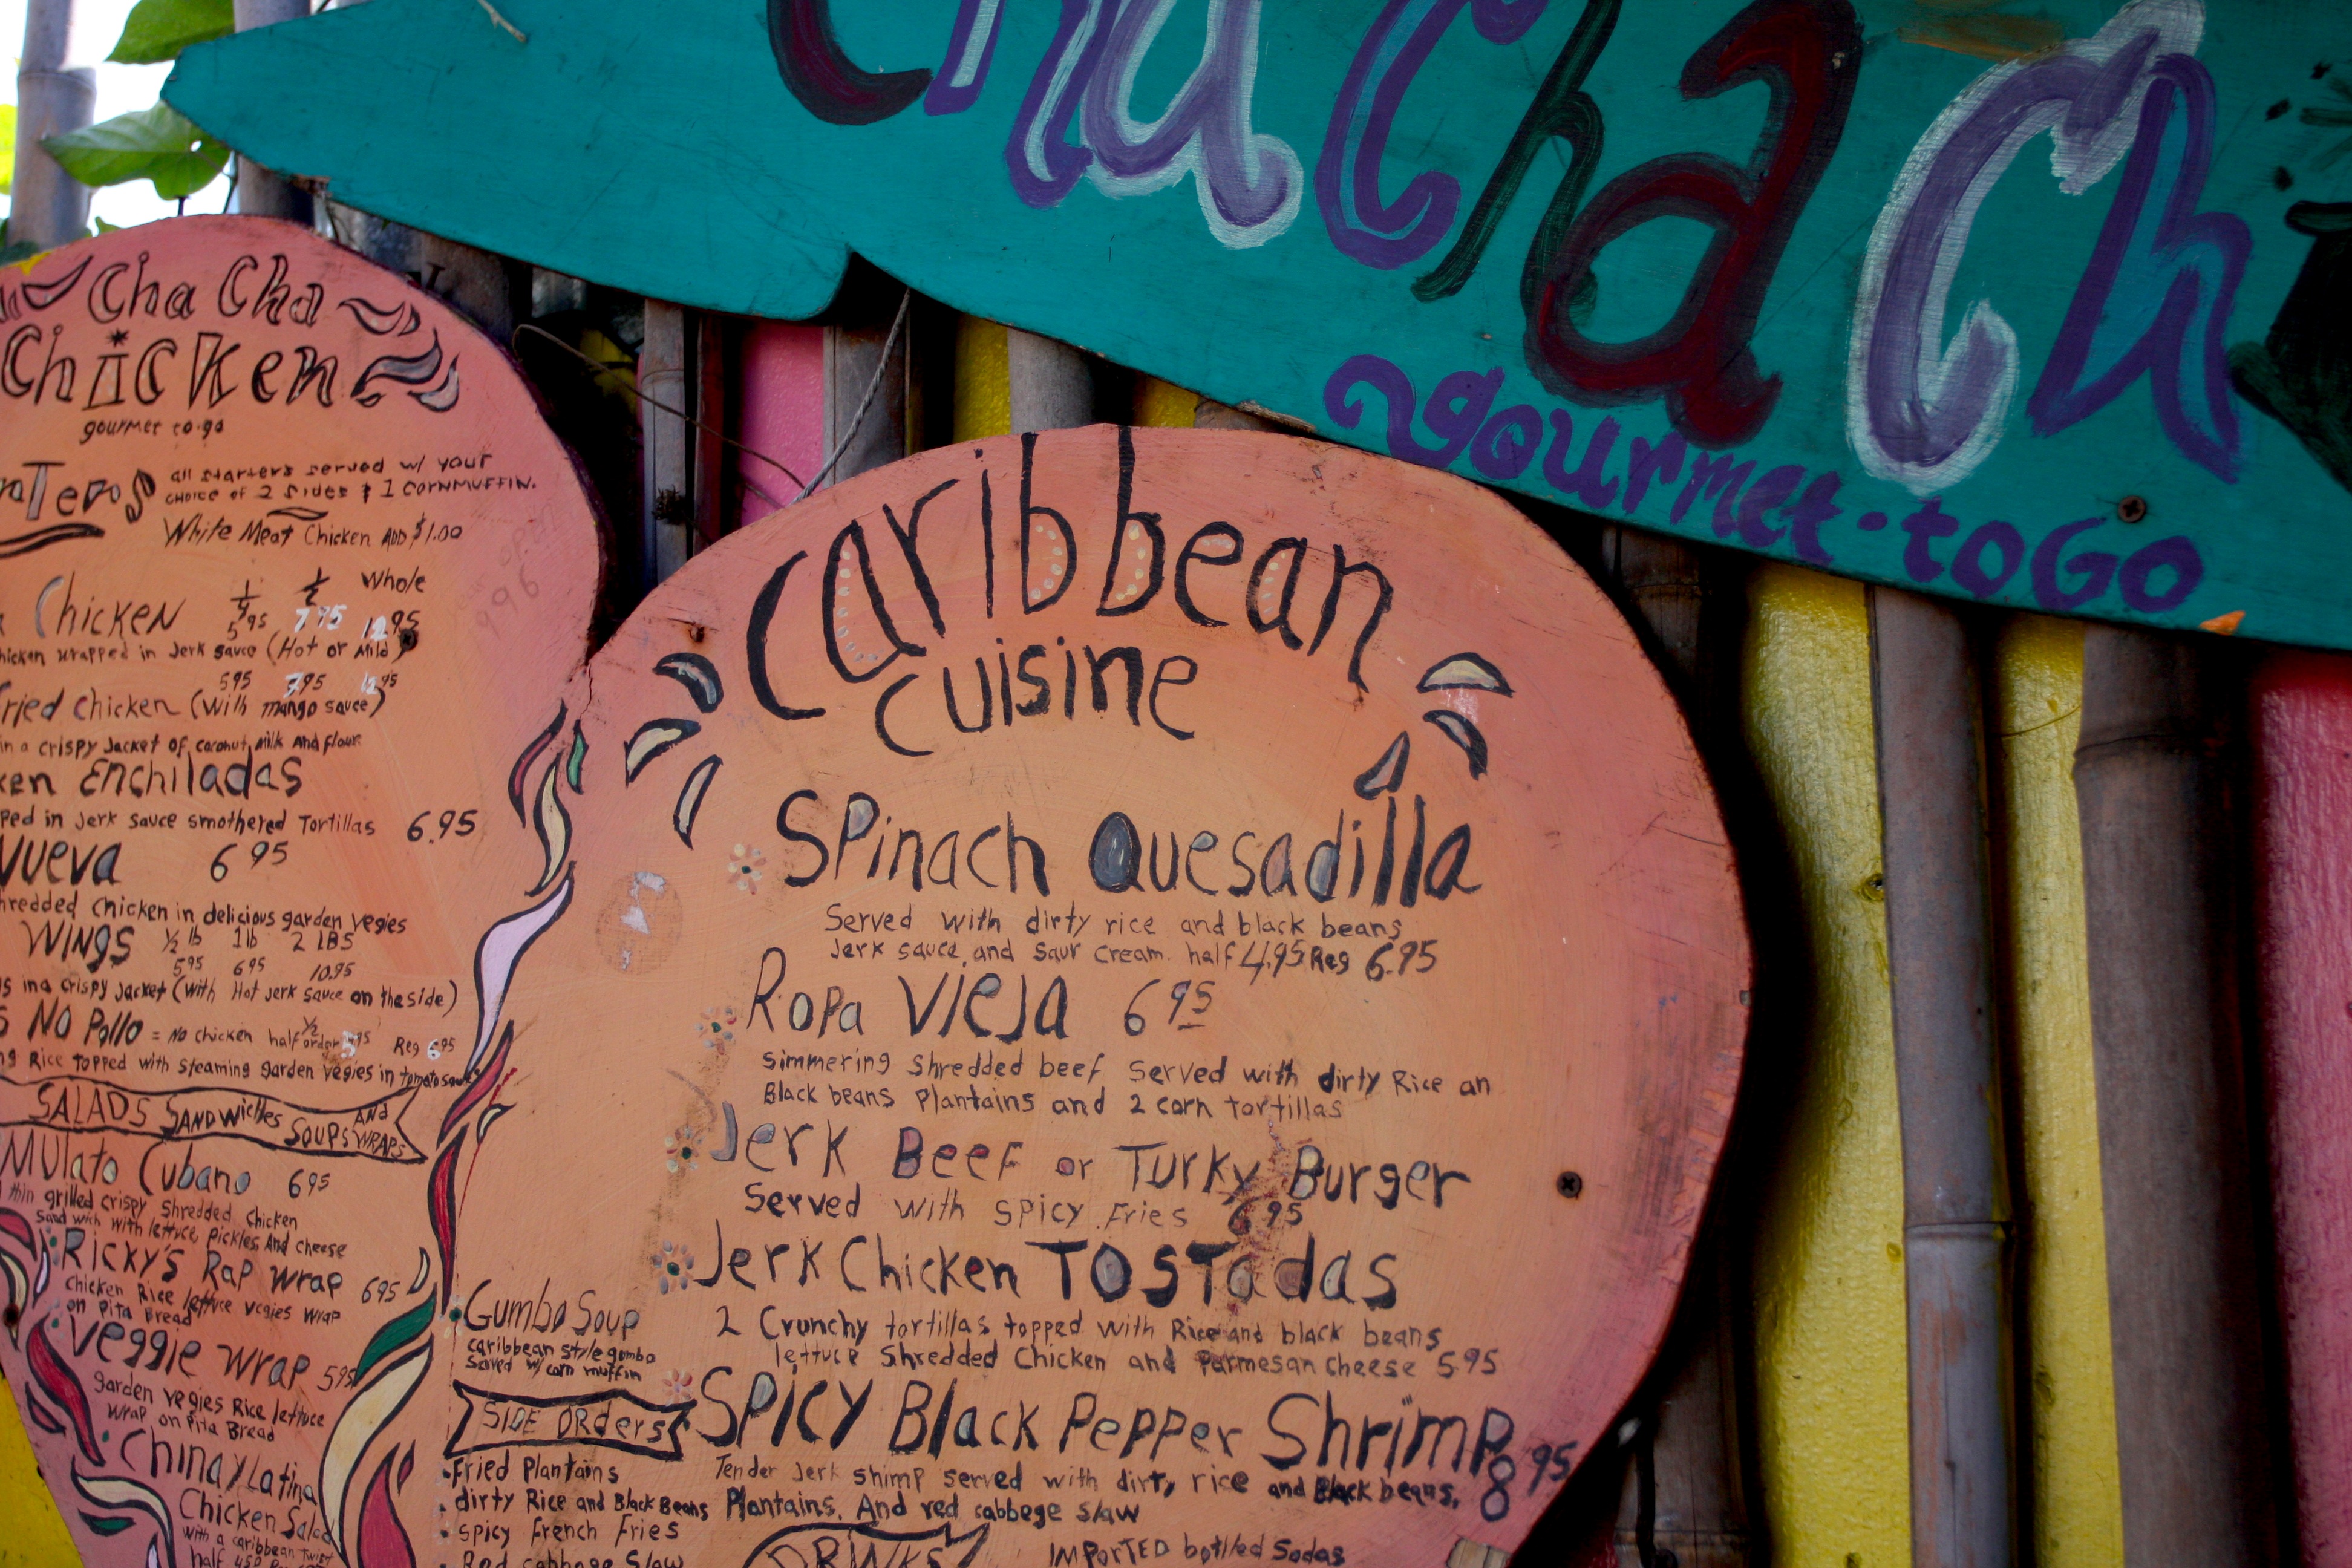 Cha Cha Ch
gourmet-toGo
Cha Cha
Chicken
gourmet to-go
all starters served w/ your
choice of 2 sides & 1 cornmuffin.
White Meat Chicken ADD $1.00
1/4 1/2 Whole
Chicken 5 95 7 95 12 95
wrapped in Jerk sauce (Hot or Mild)
5 95 7 95 12 95
Chicken (with mango sauce)
in a crispy Jacket of coconut Milk And flour
Enchiladas
in Jerk sauce smothered Tortillas 6.95
6 95
Chicken in delicious garden vegies
WINGS 1/2 lb 1 lb 2 LBS
5 95 6 95 10.95
in a crispy Jacket (with Hot Jerk sauce on the side)
NO Pollo = No chicken half order Reg 6 95
Rice topped with steaming garden vegies in tomato
SALADS SANDwiches SOUPS AND WRAPS
Mulato Cubano 6 95
thin grilled crispy Shredded Chicken
Sandwich with lettuce, pickles, And cheese
RICKY'S Rap Wrap 6 95
Chicken Rice lettuce vegies Wrap
on Pita Bread
Veggie Wrap 5 95
garden vegies Rice lettuce
Wrap on Pita Bread
China y Latina
Chicken Salad
with a caribbean Twist
half
Caribbean
Cuisine
Spinach Quesadilla
Served with dirty rice and black beans
Jerk sauce, and Saur cream. half 4.95 Reg 6.95
Ropa Vieja 6 95
Simmering Shredded beef Served with dirty Rice an
Black beans Plantains and 2 corn tortillas
Jerk Beef or Turky Burger
Served with spicy fries 6 95
Jerk Chicken Tostadas
2 Crunchy tortillas topped with Rice and black beans
lettuce Shredded Chicken and Parmesan cheese 5.95
Spicy Black Pepper Shrimp 8 95
Tender Jerk shimp served with dirty rice and Black beans,
Plantains. And red cabbege slaw
Gumbo Soup
caribbean style gumbo
Served w/ corn muffin
SIDE ORders
Fried Plantains
dirty Rice and Black Beans
spicy french fries
Red cabbage Slaw
DRINKS
IMPORTED bottled Sodas